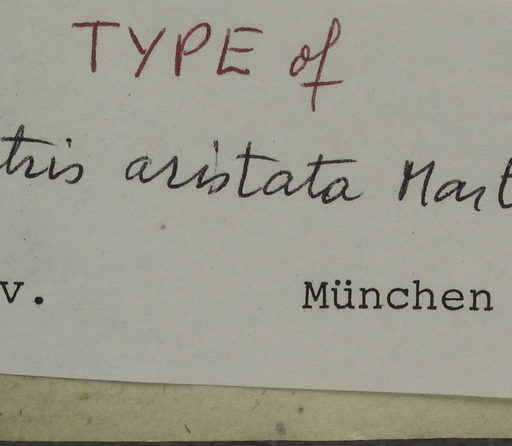 TYPE of
tris aristata Mart
v. München